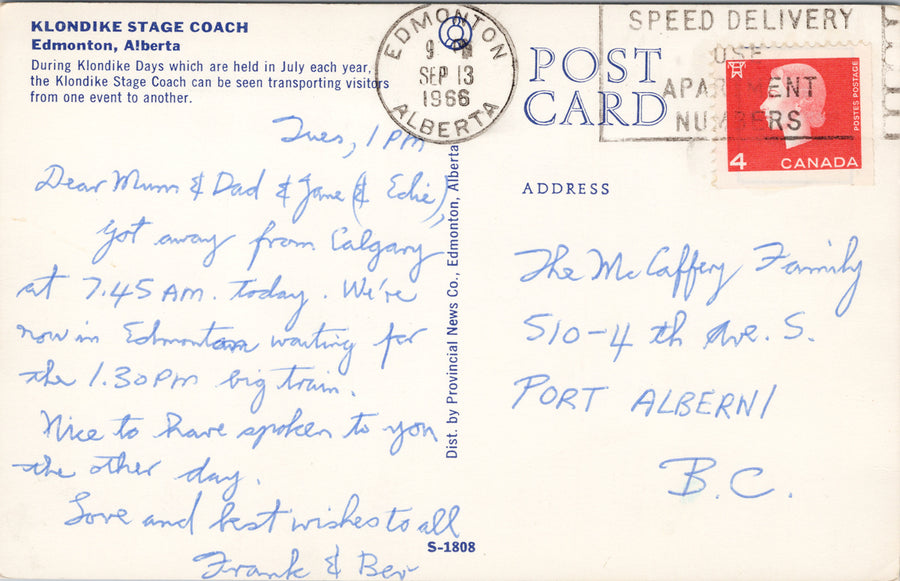 KLONDIKE STAGE COACH
Edmonton, Alberta
During Klondike Days which are held in July each year,
the Klondike Stage Coach can be seen transporting visitors
from one event to another.
EDMONTON
9 PM
SEP 13
1966
ALBERTA
SPEED DELIVERY
USE
APARTMENT
NUMBERS
POST
CARD
POSTES POSTAGE
4 CANADA
Tues, 1 PM
Dear Mum & Dad & Jane (& Edie),
Got away from Calgary
at 7.45 AM. today. We're
now in Edmonton waiting for
the 1.30 PM big train.
Nice to have spoken to you
the other day.
Love and best wishes to all
Frank & Bev
Dist. by Provincial News Co., Edmonton, Alberta
S-1808
ADDRESS
The McCaffery Family
510-4th Ave. S.
PORT ALBERNI
B.C.